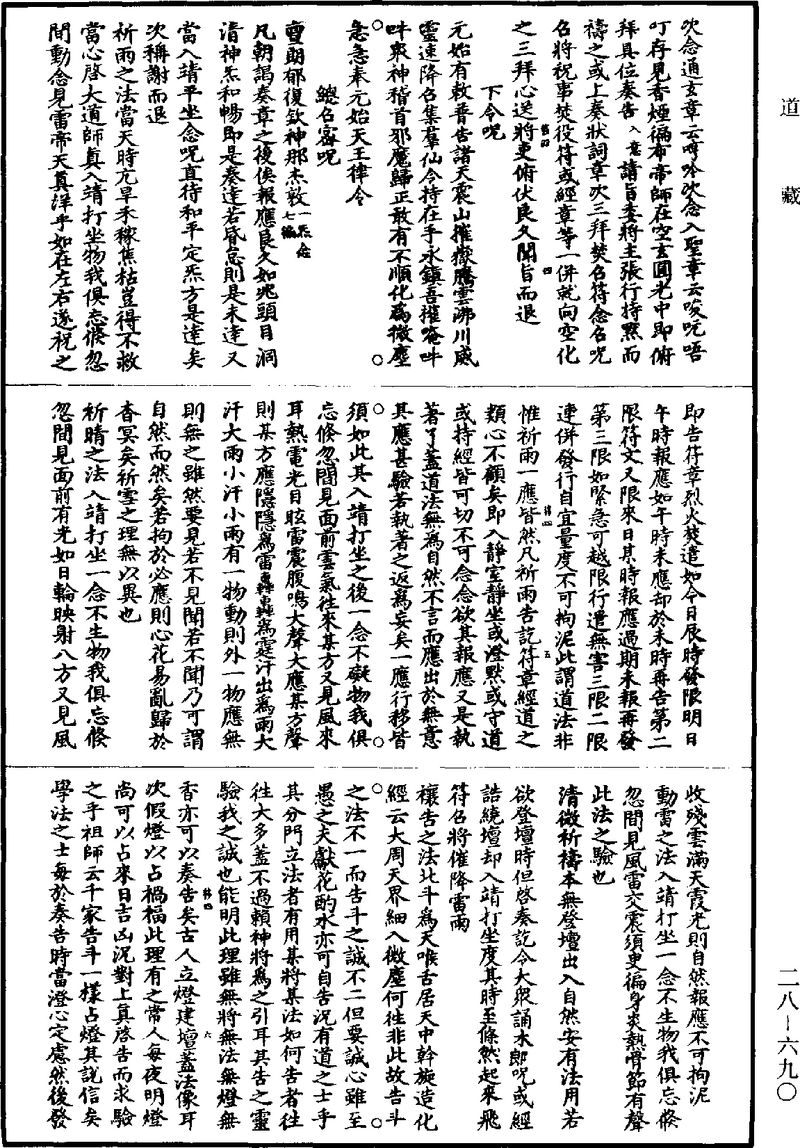 道藏
次念通玄章云吽吟次念入聖章云唆吭唔
叮存見香煙徧布帝師在空玄圓光中即俯
拜具位奏告入意請旨委將主張行持默而
禱之或上奏狀詞章次三拜焚名符念名呪
名將祝事焚役符或經章等一併就向空化
之三拜心送將吏俯伏良久聞旨而退
下令呪
元始有敕普告諸天震山摧嶽騰雲沸川威
靈速降名集羣仙令持在手永鎮吾摧唵吽
吽衆神稽首邪魔歸正敢有不順化為微塵
急急奉元始天王律令
總名密呪
亶朗郁復欽神那杰敦一炁念七徧
凡朝謁奏章之後俟報應良久如兆頭目洞
清神炁和暢即是奏達若昏怠則是未達又
當入靖平坐念呪直待和平定炁方是達矣
次稱謝而退
祈雨之法當天時亢旱禾稼焦枯豈得不救
當心啓大道師真入靖打坐物我俱忘倏忽
間動念見雷帝天真洋乎如在左右遂祝之
即告符章烈火焚遣如今日辰時發限明日
午時報應如午時未應却於未時再告第二
限符文又限來日某時報應過期未報再發
第三限如緊急可越限行遣無害三限二限
連併發行自宜量度不可拘泥此謂道法非
惟祈雨一應皆然凡祈雨告訖符章經道之
類心不顧矣即入靜室靜坐或澄默或守道
或持經皆可切不可念念欲其報應又是執
著了蓋道法無為自然不言而應出於無意
其應甚驗若執著之返為妄矣一應行移皆
須如此其入靖打坐之後一念不礙物我俱
忘倏忽間見面前雲氣往來某方又見風來
耳熱電光目眩雷震腹鳴大聲大應某方聲
則某方應隱隱為雷轟轟為霆汗出為雨大
汗大雨小汗小雨有一物動則外一物應無
則無之雖然要見若不見聞若不聞乃可謂
自然而然矣若拘於必應則心花易亂歸於
杳冥矣祈雪之理無以異也
祈晴之法入靖打坐一念不生物我俱忘倏
忽間見面前有光如日輪映射八方又見風
收殘雲滿天霞光則自然報應不可拘泥
動雷之法入靖打坐一念不生物我俱忘倏
忽間見風雷交震須臾徧身炎熱骨節有聲
此法之驗也
清微祈禱本無登壇出入自然安有法用若
欲登壇時但啓奏訖令大衆誦木郎呪或經
誥繞壇却入靖打坐度其時至倏然起來飛
符名將催降雷雨
禳告之法北斗為天喉舌居天中斡旋造化
經云大周天界細入微塵何往非此故告斗
之法不一而告斗之誠不二但要誠心雖至
愚之夫獻花酌水亦可自告況有道之士乎
其分門立法者有用某將某法如何告者往
往大多蓋不過賴神將為之引耳其告之靈
驗我之誠也能明此理雖無將無法無燈無
香亦可以奏告矣古人立燈建壇蓋法像耳
次假燈以占禍福此理有之常人每夜明燈
尚可以占來日吉凶況對上真啓告而求驗
之乎祖師云千家告斗一樣占燈其說信矣
學法之士每於奏告時當澄心定慮然後發
二八－六九〇